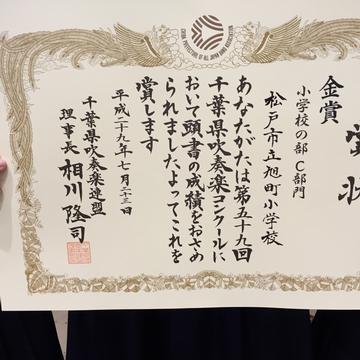 賞状
金賞
小学校の部 C部門
松戸市立旭町小学校
あなたがたは第五十九回
千葉県吹奏楽コンクールに
おいて頭書の成績をおさめ
られましたよってこれを
賞します
平成二十九年七月二十三日
千葉県吹奏楽連盟
理事長 相川隆司